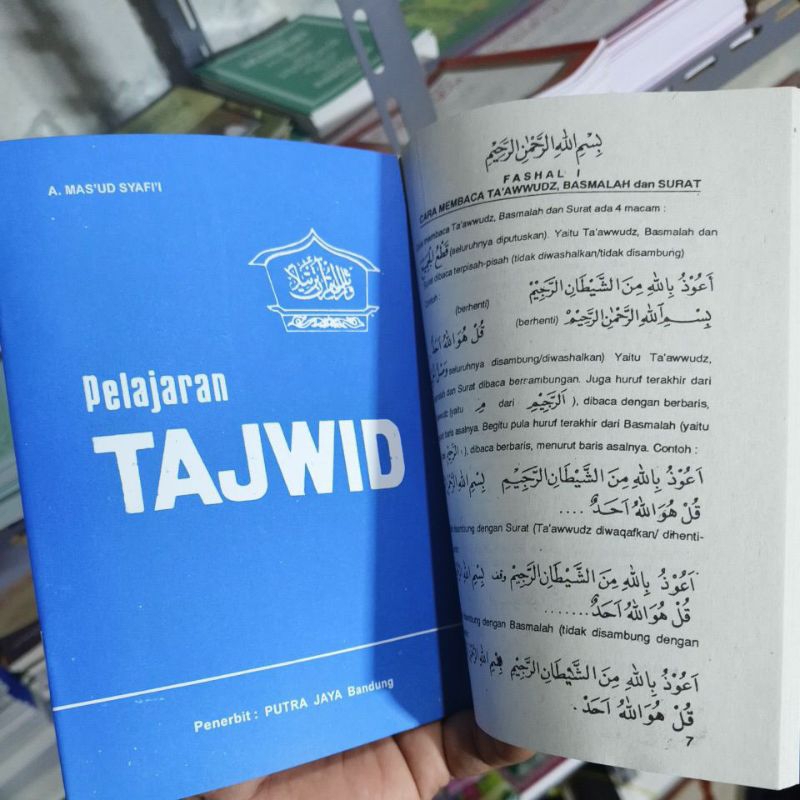 A. MAS'UD SYAFI'I
Pelajaran
TAJWID
Penerbit : PUTRA JAYA Bandung
بِسْمِ اللهِ الرَّحْمٰنِ الرَّحِيْمِ
FASHAL I
CARA MEMBACA TA'AWWUDZ, BASMALAH dan SURAT
membaca Ta'awwudz, Basmalah dan Surat ada 4 macam :
قَطْعُ (seluruhnya diputuskan). Yaitu Ta'awwudz, Basmalah dan
dibaca terpisah-pisah (tidak diwashalkan/tidak disambung)
Contoh :
اَعُوْذُ بِاللهِ مِنَ الشَّيْطَانِ الرَّجِيْمِ
(berhenti)
بِسْمِ اللهِ الرَّحْمٰنِ الرَّحِيْمِ
(berhenti) قُلْ هُوَ اللهُ اَحَدٌ
(seluruhnya disambung/diwashalkan) Yaitu Ta'awwudz,
dan Surat dibaca bersambungan. Juga huruf terakhir dari
(yaitu مِ dari الرَّجِيْمِ ), dibaca dengan berbaris,
baris asalnya. Begitu pula huruf terakhir dari Basmalah (yaitu
), dibaca berbaris, menurut baris asalnya. Contoh :
اَعُوْذُ بِاللهِ مِنَ الشَّيْطَانِ الرَّجِيْمِ بِسْمِ اللهِ
قُلْ هُوَ اللهُ اَحَدٌ ....
dengan Surat (Ta'awwudz diwaqafkan/ dihenti-
اَعُوْذُ بِاللهِ مِنَ الشَّيْطَانِ الرَّجِيْمِ وقف بِسْمِ اللهِ
قُلْ هُوَ اللهُ اَحَدٌ .......
dengan Basmalah (tidak disambung dengan
اَعُوْذُ بِاللهِ مِنَ الشَّيْطَانِ الرَّجِيْمِ
قُلْ هُوَ اللهُ اَحَدْ .
7